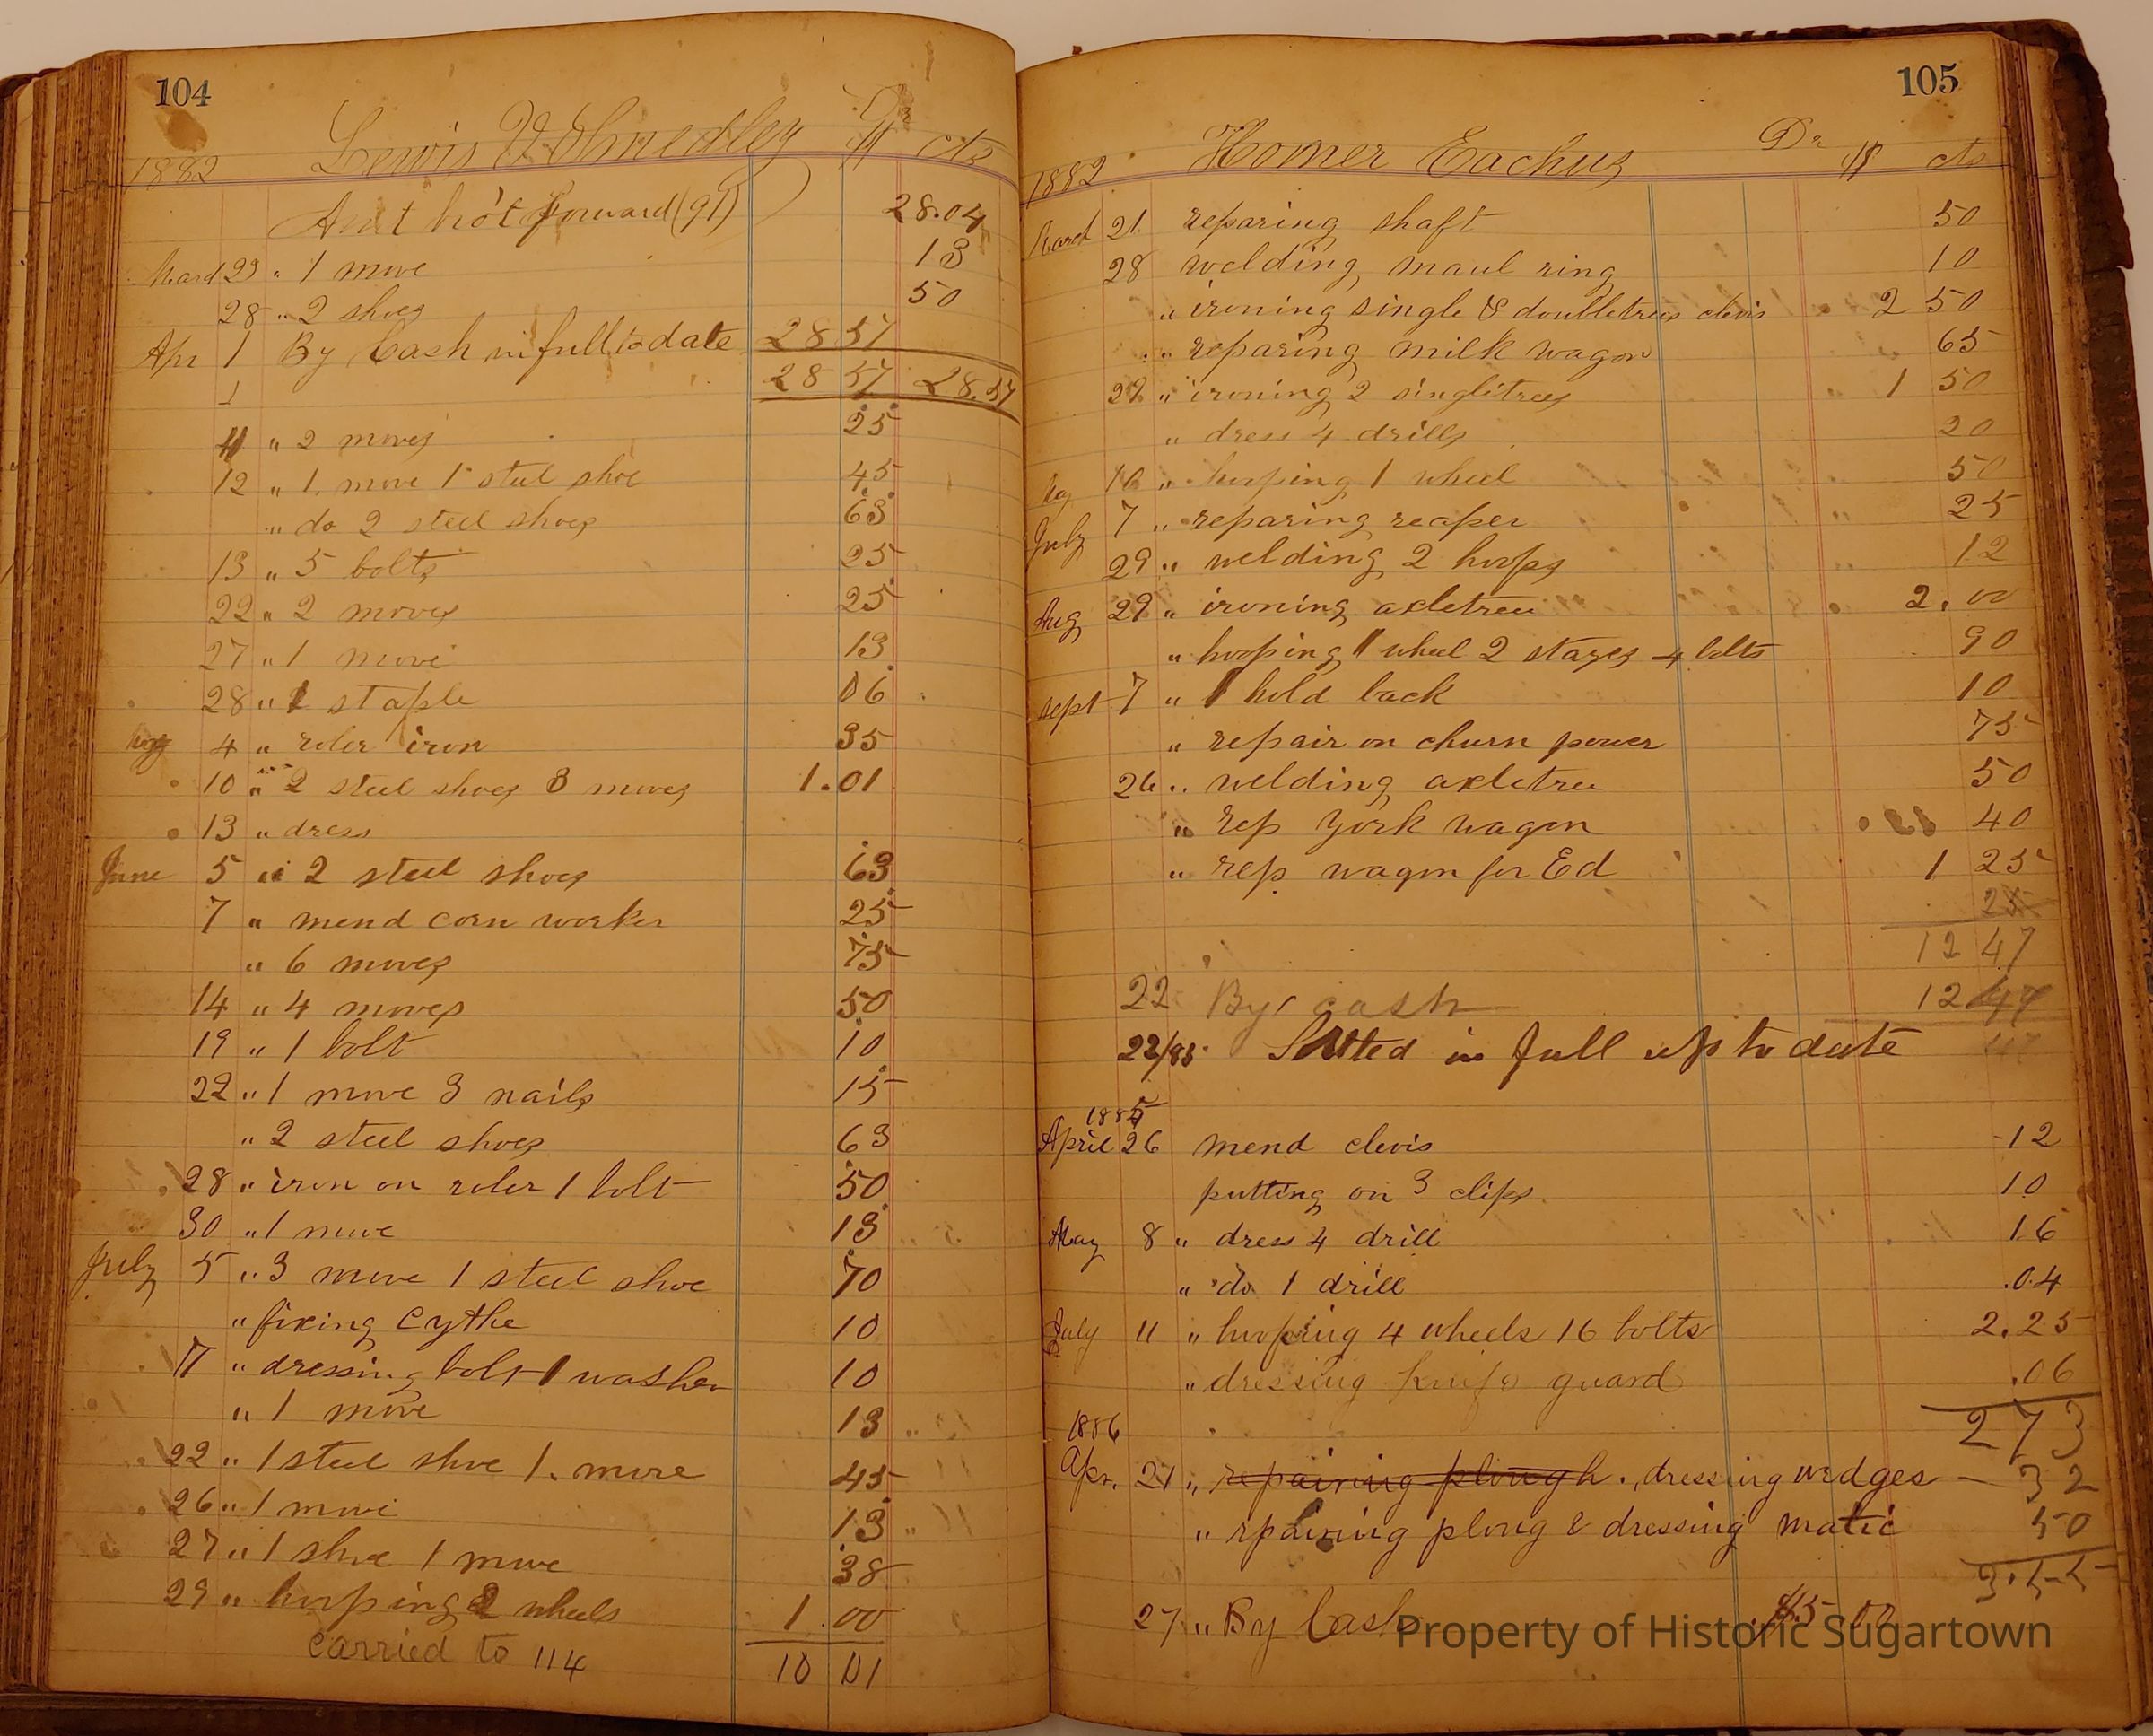 104
Lewis Dr
1882 $ cts
Am't bro't forward (91) 28.04
March 23 " 1 move 13
28 " 2 shoes 50
Apr 1 By Cash in full to date 28 57
1 28 57 28.57
11 " 2 moves 25
12 " 1 move 1 steel shoe 45
" do 2 steel shoes 63
13 " 5 bolts 25
22 " 2 moves 25
27 " 1 move 13
28 " 1 staple 06
May 4 " roler iron 35
10 " 2 steel shoes 3 moves 1.01
13 " dress
June 5 " 2 steel shoes 63
7 " mend corn worker 25
" 6 moves 75
14 " 4 moves 50
19 " 1 bolt 10
22 " 1 move 3 nails 15
" 2 steel shoes 63
28 " iron on roler 1 bolt 50
30 " 1 move 13
July 5 " 3 move 1 steel shoe 70
" fixing cythe 10
17 " dressing bolt 1 washer 10
" 1 move 13
22 " 1 steel shoe 1 move 45
26 " 1 move 13
27 " 1 shoe 1 move 38
29 " hooping 2 wheels 1.00
carried to 114 10 01
105
1882 Homer Eachus Dr $ cts
March 21 reparing shaft 50
28 welding maul ring 10
" ironing single & doubletrees clevis 2 50
" reparing milk wagon 65
29 " ironing 2 singlitrees 1 50
" dress 4 drills 20
May 16 " hooping 1 wheel 50
July 7 " reparing reaper 25
29 " welding 2 hoops 12
Aug 29 " ironing axletree 2.00
" hooping 1 wheel 2 stayes 4 bolts 90
sept 7 " 1 hold back 10
" repair on churn power 75
26 " welding axletree 50
" rep york wagon 40
" rep wagon for Ed 1 25
25
12 47
22 By cash 12 47
22/83 Settled in full up to date 47
1885
April 26 mend clevis 12
putting on 3 clips 10
May 8 " dress 4 drill 16
" do 1 drill .04
July 11 " hooping 4 wheels 16 bolts 2.25
" dressing knife guard .06
2 73
1886
Apr. 21 " repairing plough . dressing wedges — 32
" rpairing ploug & dressing matic 50
3.55
27 " By Cash $5 00
Property of Historic Sugartown